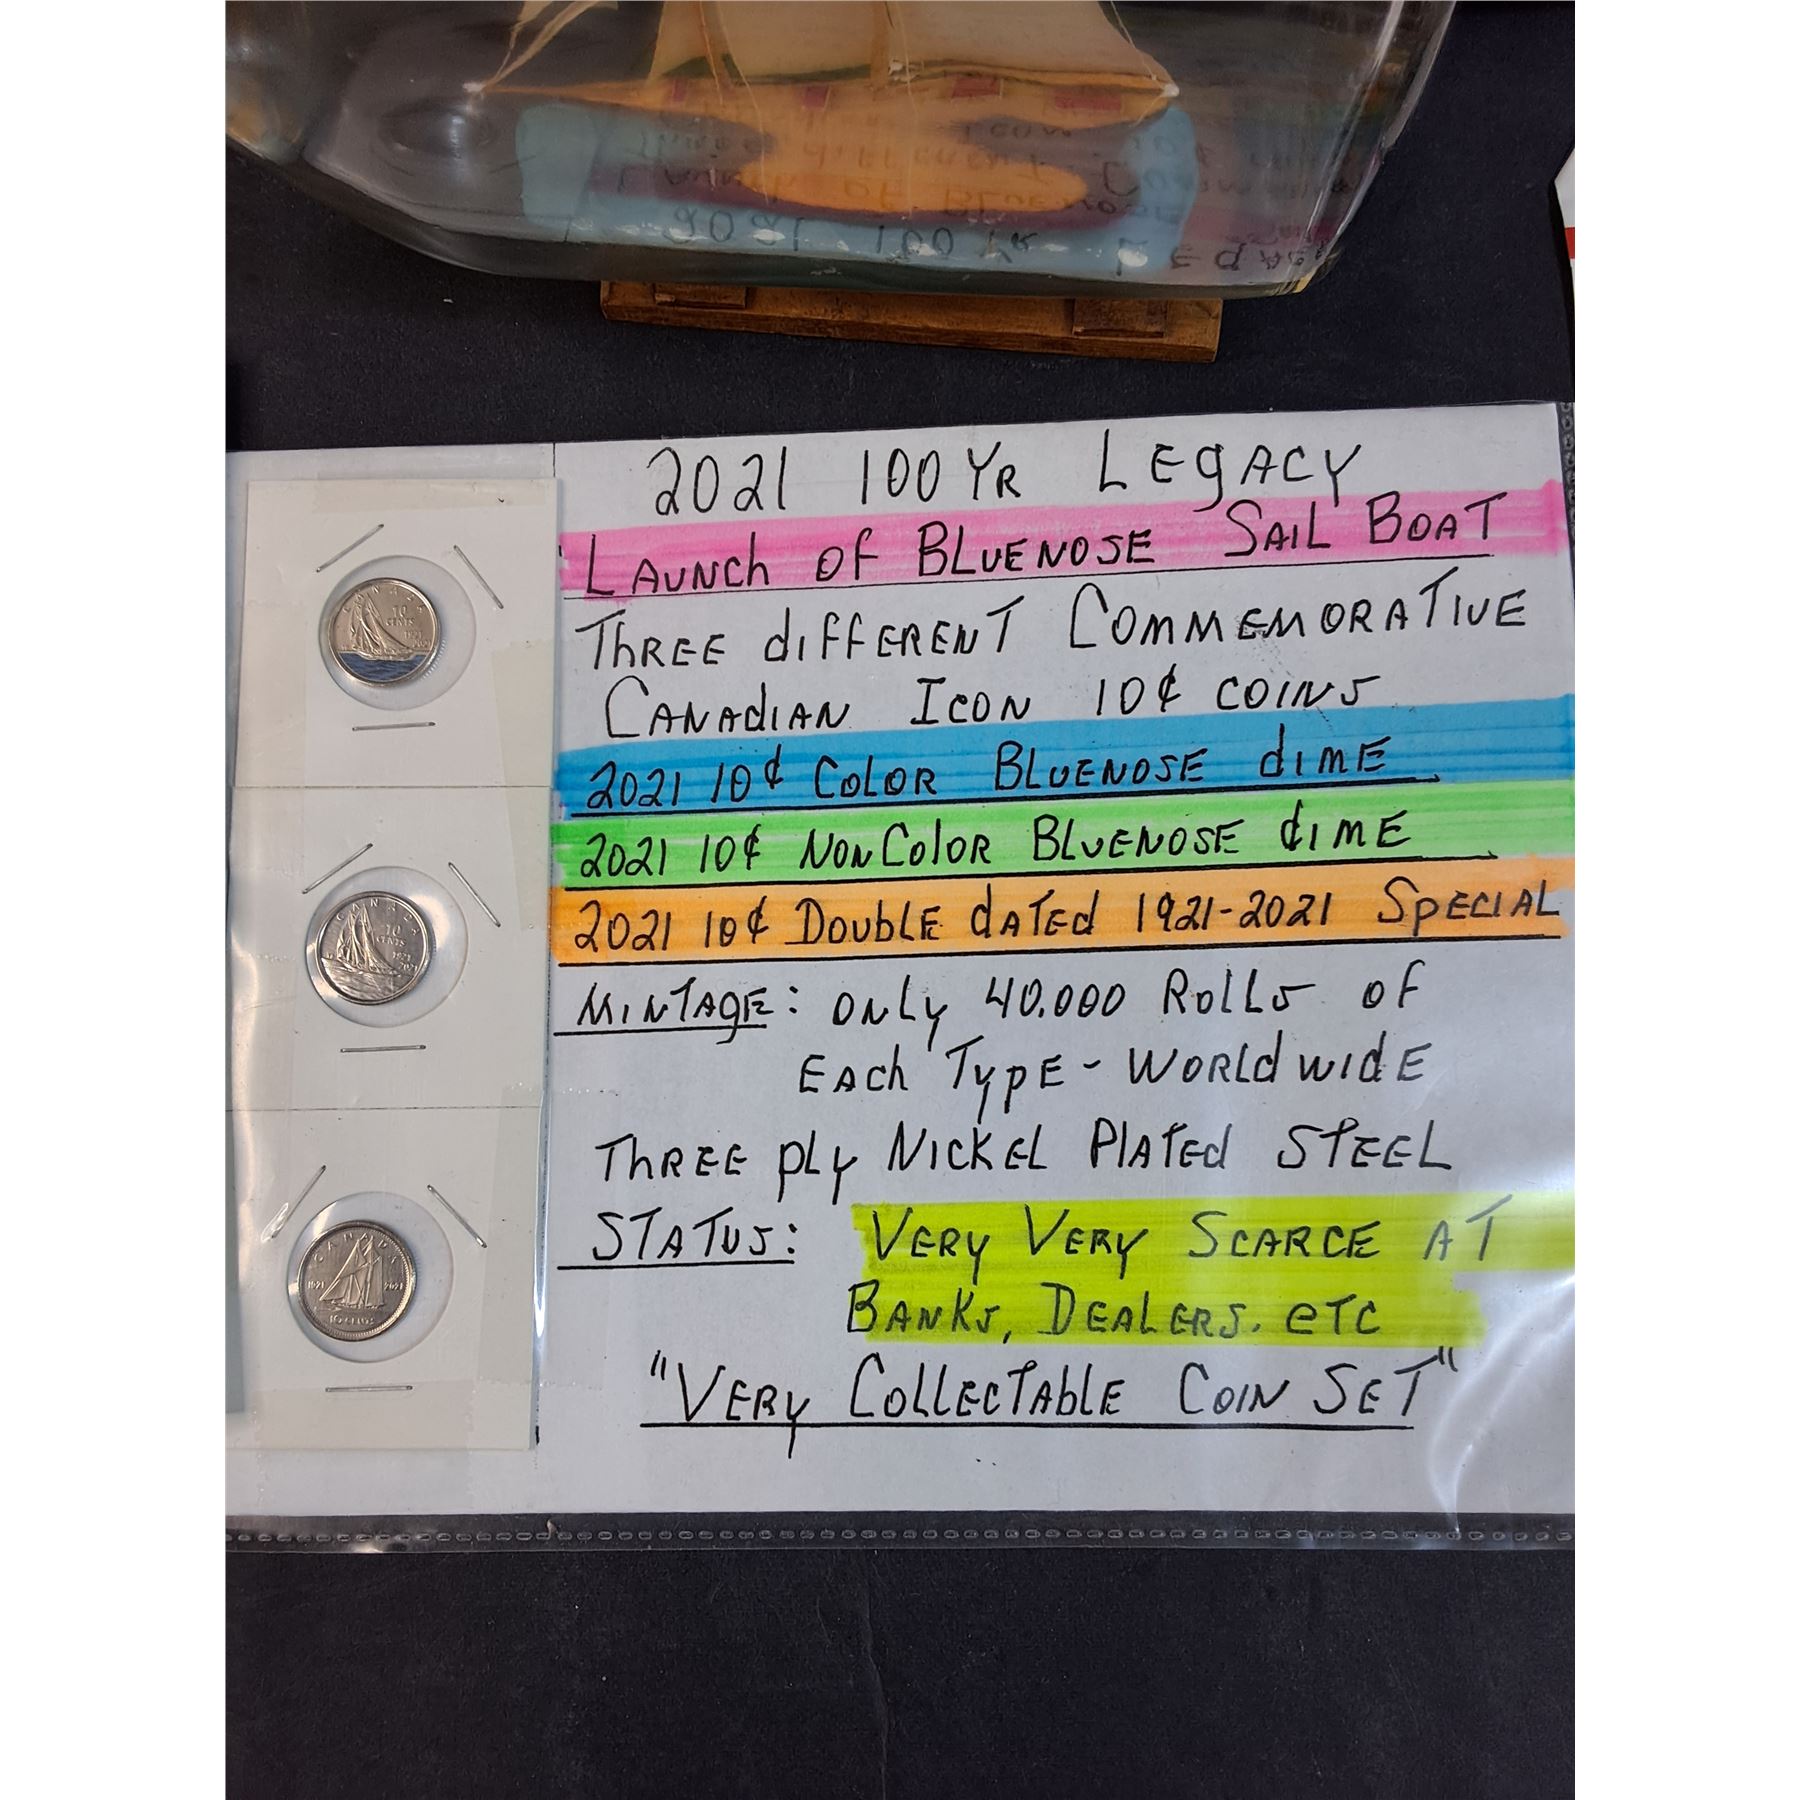 2021 100 YR LEgACY
LAUNCh OF BLUENOSE SAIL BOAT
ThREE dIFFERENT COMMEMORATIVE
CANAdIAN ICON 10¢ COINS
2021 10¢ COLOR BLUENOSE dIME
2021 10¢ NONCOloR BLUENOSE dIME
2021 10¢ DOUBLE dATEd 1921-2021 SpECIAL
MINTAgE: ONLy 40.000 ROLLS OF
EACh TypE - WORLdWIdE
ThREE pLy NICKEL PLATEd STEEL
STATUS: VERy VERy SCARCE AT
BANKS, DEALERS. eTC
"VERy COLLECTAbLE COIN SET"
CANADA
10
CENTS
1921
2021
CANADA
10
CENTS
1921
2021
CANADA
1921 2021
10 CENTS